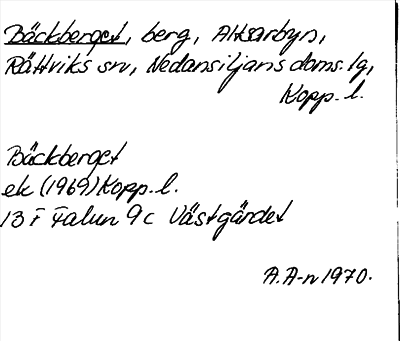 Bäckberget, berg, Altsarbyn,
Rättviks sn, Nedansiljans doms. lg,
Kopp. l.
Bäckberget
ek (1969) Kopp. l.
13 F Falun 9c Västgärdet
A.A-n 1970.